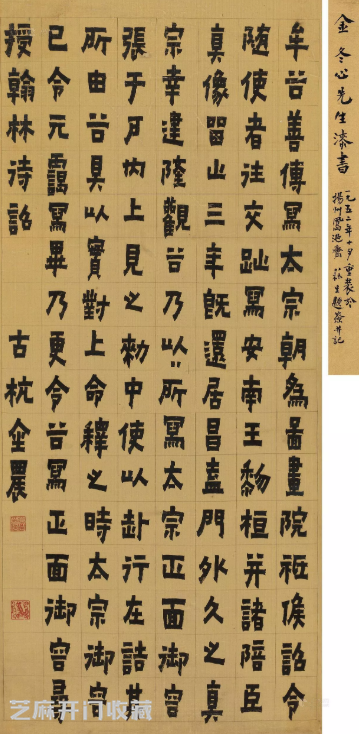 金冬心先生漆書
年十月重裝於
揚州 題簽并記
牟谷善傳寫太宗朝為圖畫院祗候詔令
随使者往交趾寫安南王黎桓并諸陪臣
真像畱山三年既還居昌盍門外久之真
宗幸建隆觀谷乃以所寫太宗正面御容
張于戸内上見之勑中使以赴行在詰其
所由谷具以實對上命釋之時太宗御容
已令元靄寫畢乃更令谷寫正面御容尋
授翰林待詔 古杭金農
芝麻开门收藏